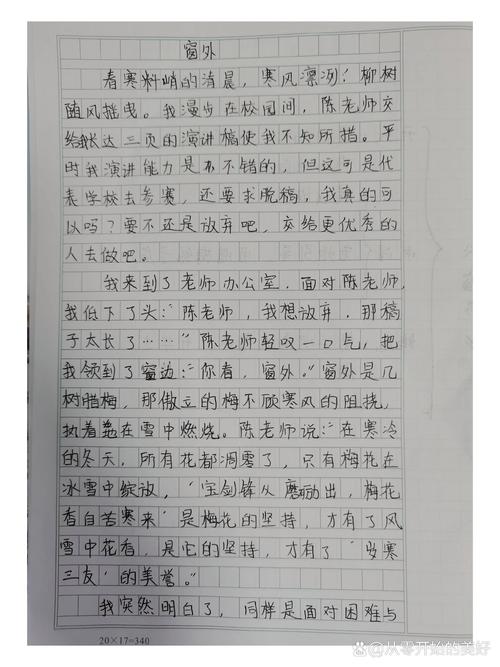 窗外
春寒料峭的清晨，寒风凛冽！柳树
随风摇曳。我漫步在校园间，陈老师交
给我长达三页的演讲稿使我不知所措。平
时我演讲能力是不错的，但这可是代
表学校去参赛，还要求脱稿，我真的可
以吗？要不还是放弃吧，交给更优秀的
人去做吧。
我来到了老师办公室，面对陈老师，
我低下了头："陈老师，我想放弃，那稿
子太长了……"陈老师轻叹一口气，把
我领到了窗边："你看，窗外。"窗外是几
树腊梅，那傲立的梅不顾寒风的阻挠，
执着地在雪中燃烧。陈老师说："在寒冷
的冬天，所有花都凋零了，只有梅花在
冰雪中绽放，'宝剑锋从磨砺出，梅花
香自苦寒来'是梅花的坚持，才有了风
雪中花香，是它的坚持，才有了'岁寒
三友'的美誉。"
我突然明白了，同样是面对困难与
20×17=340
@从零开始的美好